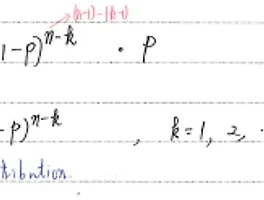 (n-1)-(k-1)
1-p)^{n-k} · p
-p)^{n-k} , k=1, 2, ·
tribution.